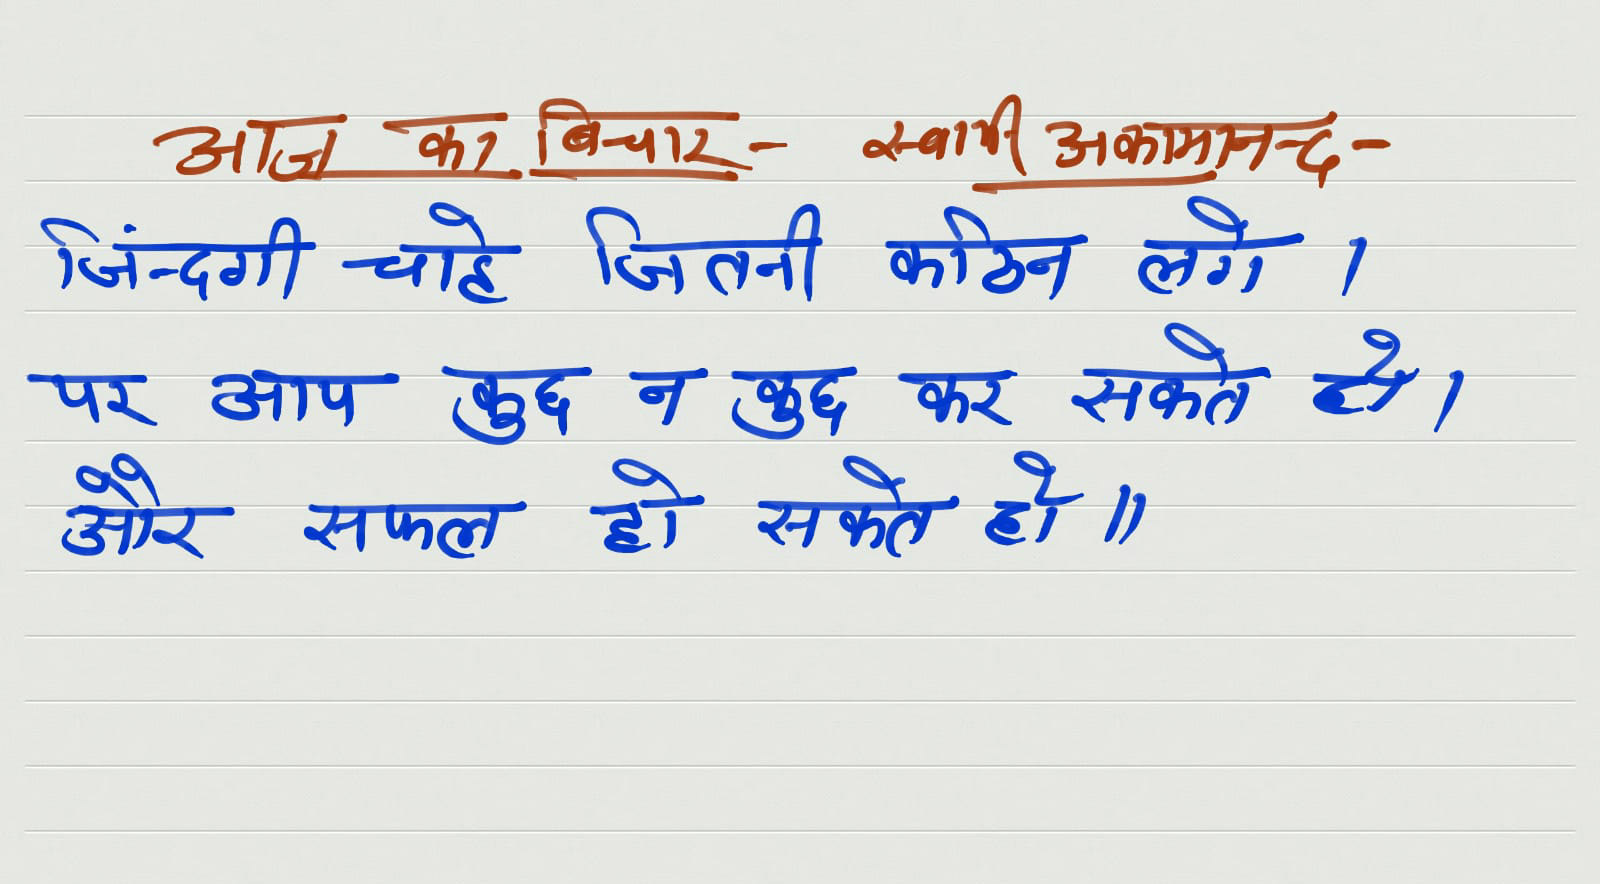 आज का बिचार - स्वामी अकामानन्द -
जिंन्दगी चाहे जितनी कठिन लगे ।
पर आप कुछ न कुछ कर सकते हो ।
और सफल हो सकते हो ॥